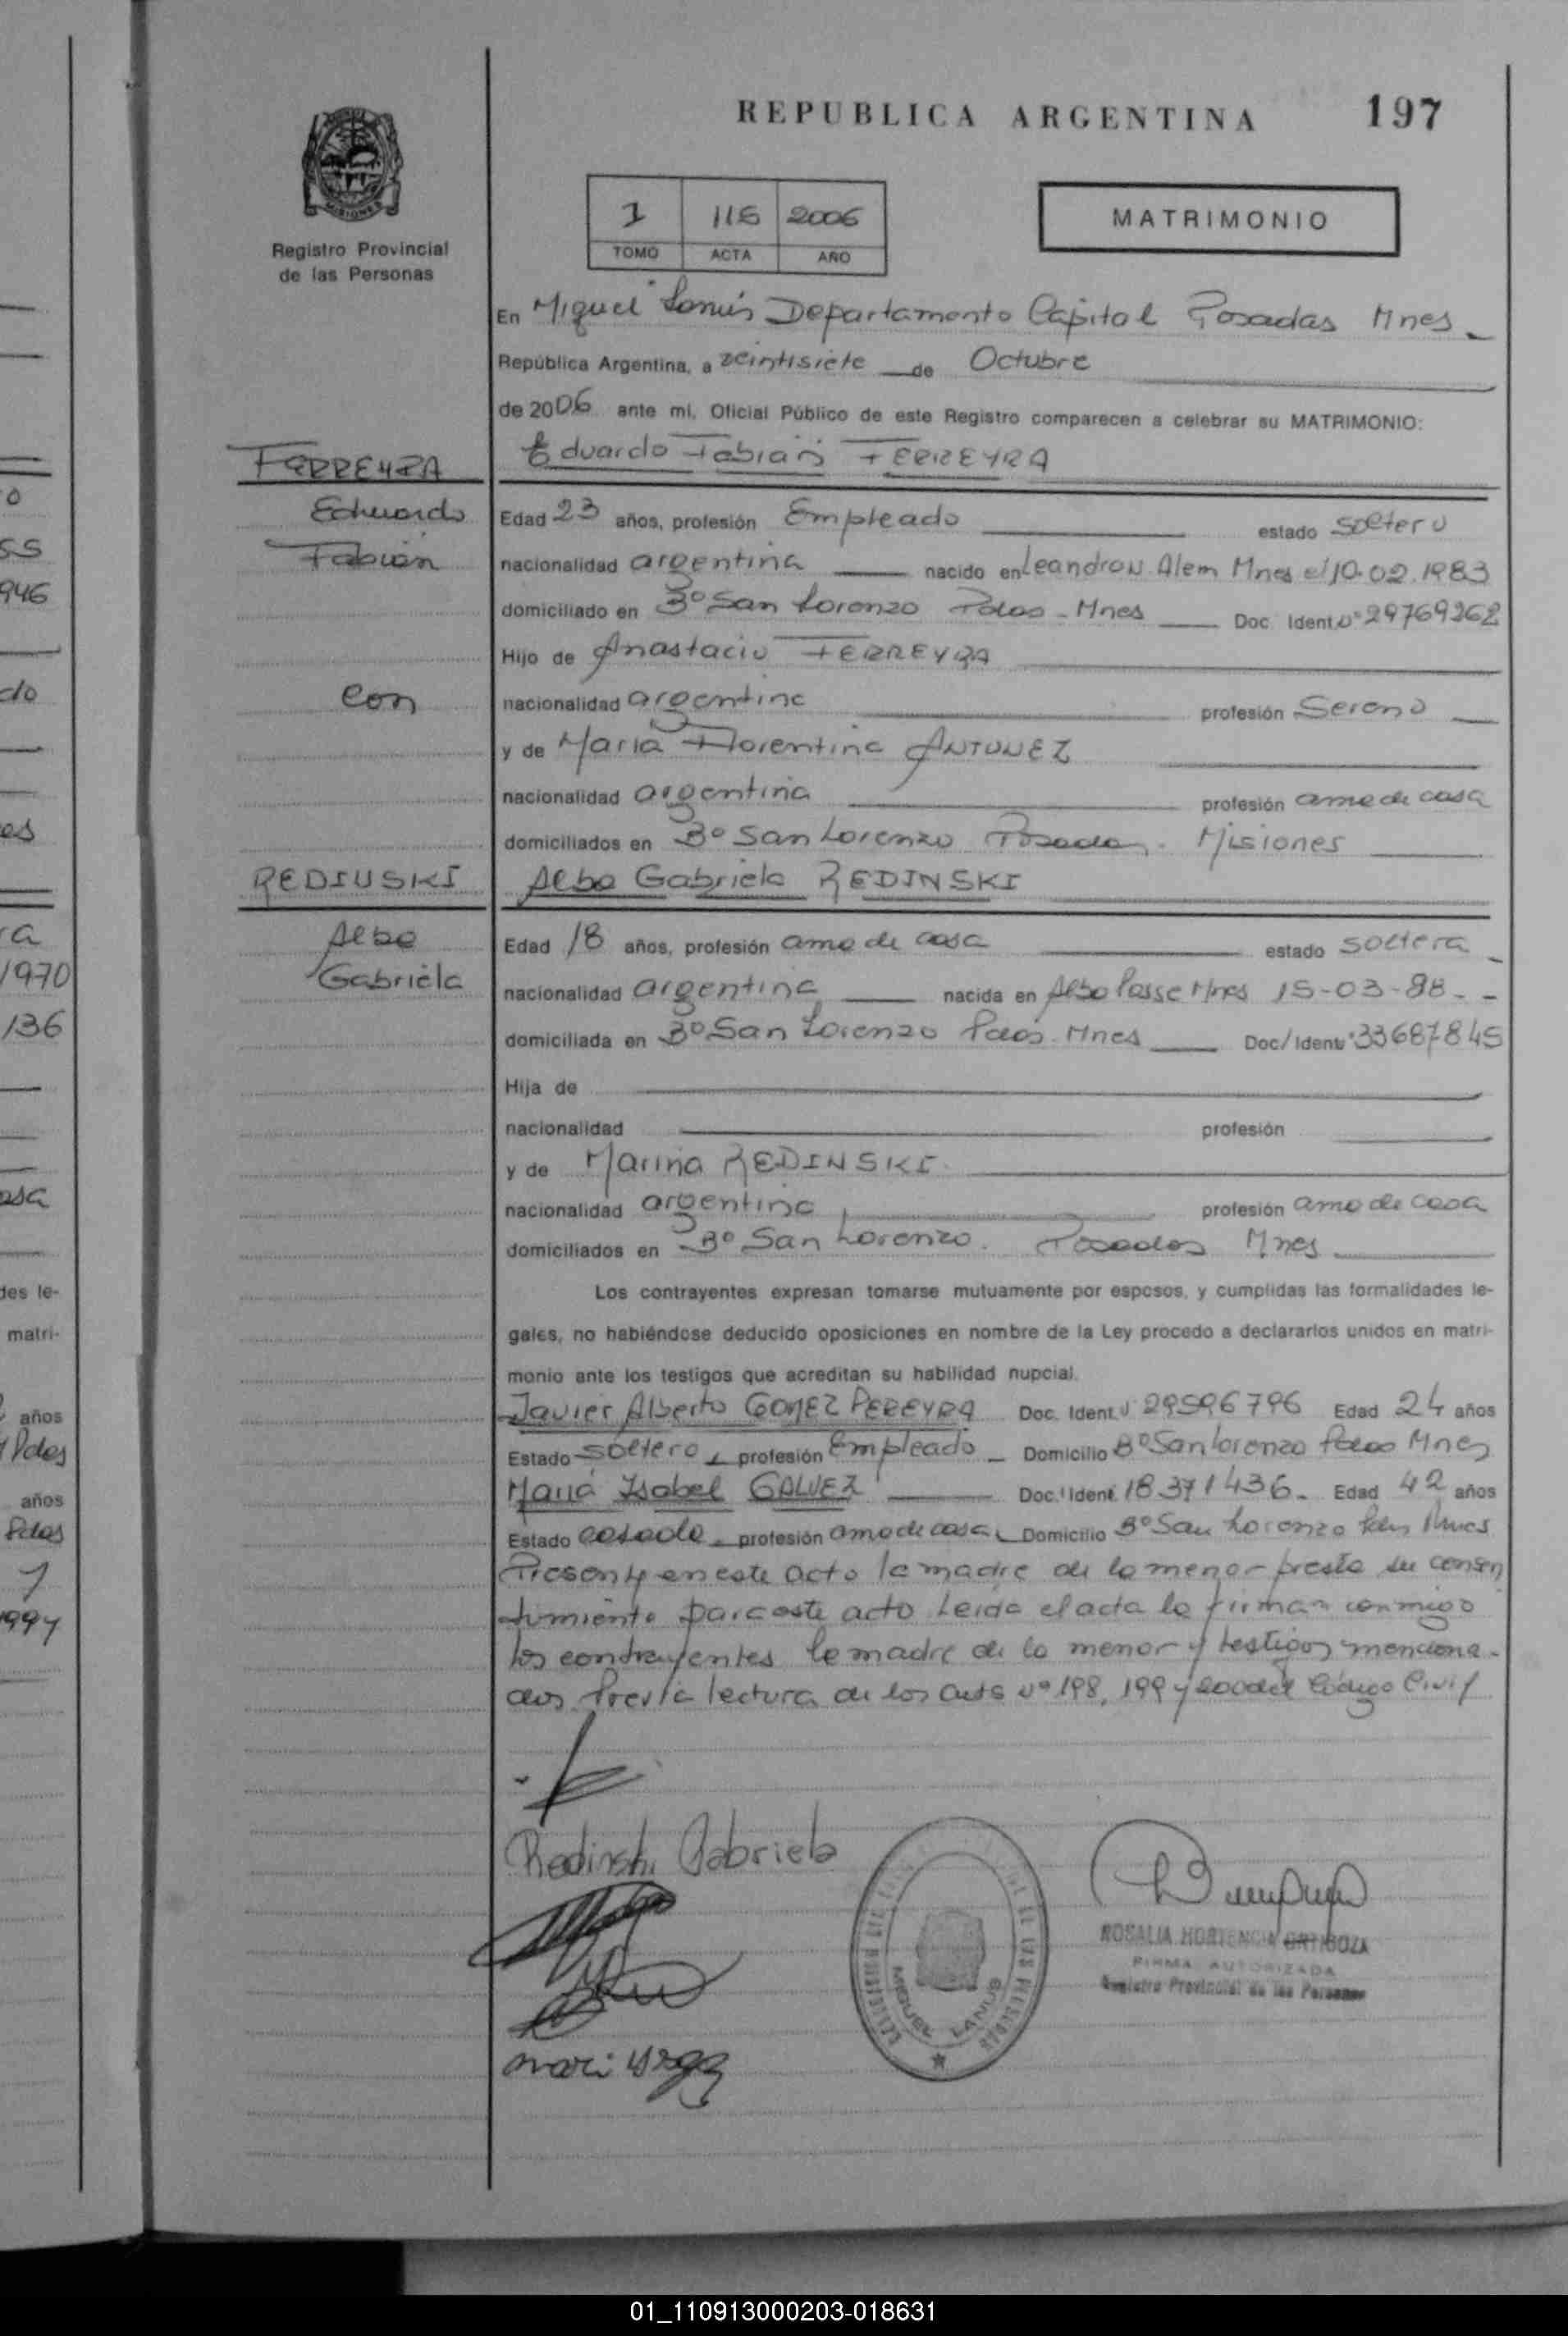 REPUBLICA ARGENTINA 197
Registro Provincial
de las Personas
1 116 2006
TOMO ACTA AÑO
MATRIMONIO
En Miguel Lanús Departamento Capital Posadas Mnes
República Argentina, a veintisiete de Octubre
de 2006 ante mi, Oficial Público de este Registro comparecen a celebrar su MATRIMONIO:
FERREYRA
Eduardo Fabián FERREYRA
Eduardo
Edad 23 años, profesión Empleado estado soltero
Fabián
nacionalidad argentina nacido en Leandro N Alem Mnes el 10.02.1983
domiciliado en Bº San Lorenzo Pdas - Mnes Doc. Ident. Nº 29769262
Hijo de Anastacio FERREYRA
con
nacionalidad argentina profesión Sereno
y de María Florentina ANTUNEZ
nacionalidad argentina profesión ama de casa
domiciliados en Bº San Lorenzo Posadas. Misiones
REDINSKI
Alba Gabriela REDINSKI
Alba
Edad 18 años, profesión ama de casa estado soltera
Gabriela
nacionalidad argentina nacida en Alba Posse Mnes 15-03-88
domiciliada en Bº San Lorenzo Pdas. Mnes Doc/Ident 33687845
Hija de
nacionalidad profesión
y de Marina REDINSKI
nacionalidad argentina profesión ama de casa
domiciliados en Bº San Lorenzo. Posadas Mnes
Los contrayentes expresan tomarse mutuamente por esposos, y cumplidas las formalidades le-
gales, no habiéndose deducido oposiciones en nombre de la Ley procedo a declararlos unidos en matri-
monio ante los testigos que acreditan su habilidad nupcial.
Javier Alberto GOMEZ PEREYRA Doc. Ident. 29596796 Edad 24 años
Estado soltero profesión Empleado Domicilio Bº San Lorenzo Pdas Mnes
María Isabel GALVEZ Doc. Ident. 18371436 Edad 42 años
Estado casada profesión ama de casa Domicilio Bº San Lorenzo Pdas Mnes
Presente en este acto la madre de la menor presta su consen
timiento para este acto Leida el acta la firman conmigo
los contrayentes la madre de la menor y testigos menciona-
dos Previa lectura de los arts Nº 198, 199 y 200 del Código Civil
Redinski Gabriela
MIGUEL LANUS
ROSALIA HORTENCIA ORTIGOZA
FIRMA AUTORIZADA
Registro Provincial de las Personas
01_110913000203-018631